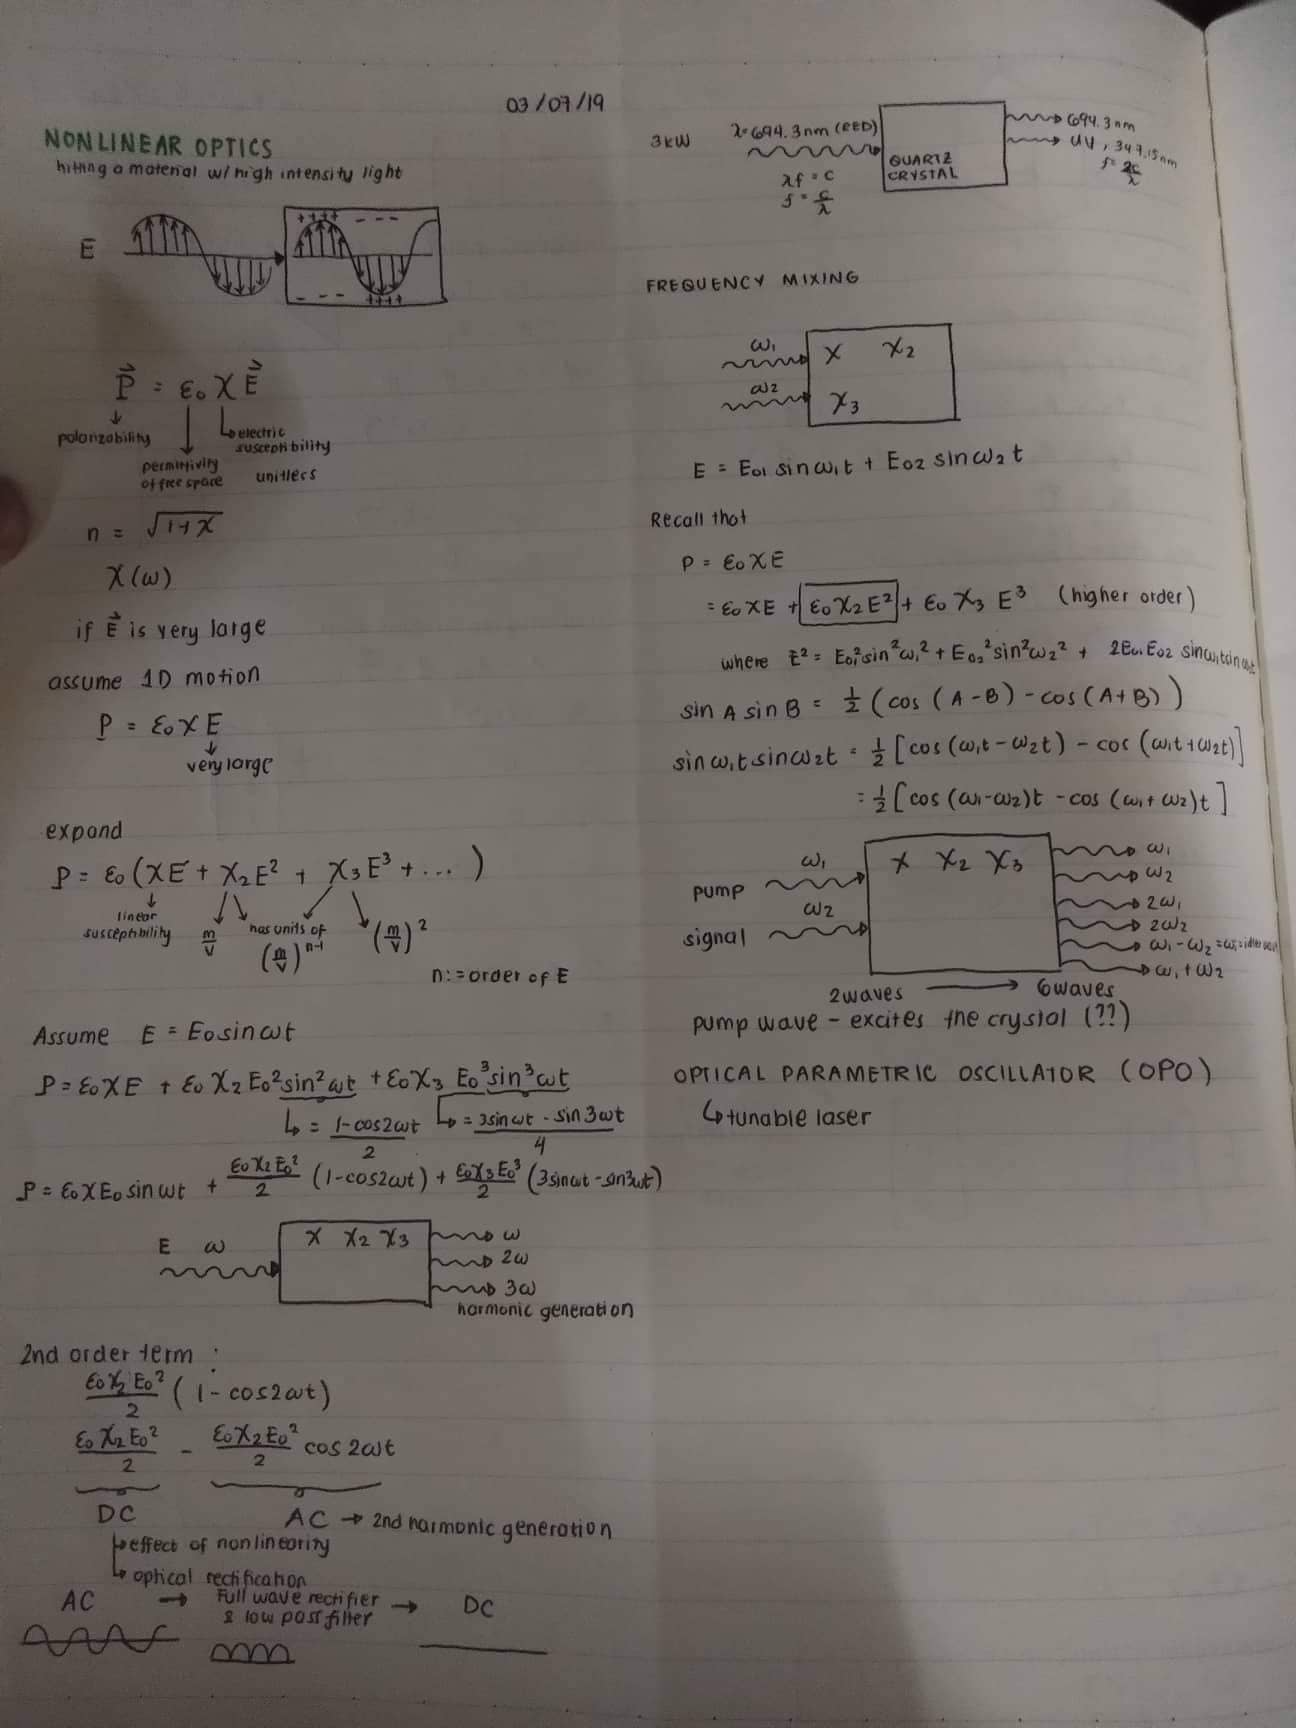 03/07/19
NONLINEAR OPTICS
hitting a material w/ high intensity light
E
++++ - - -
- - - ++++
P⃗ = ε₀ χ E⃗
polarizability
permittivity of free space
electric susceptibility
unitless
n = √(1+χ)
χ(ω)
if E⃗ is very large
assume 1D motion
P = ε₀ χ E
very large
expand
P = ε₀ (χE + χ₂E² + χ₃E³ + ... )
linear susceptibility
m/V
has units of (m/V)ⁿ⁻¹
(m/V)²
n := order of E
Assume E = E₀ sin ωt
P = ε₀χE + ε₀ χ₂ E₀² sin² ωt + ε₀χ₃ E₀³ sin³ ωt
= (1-cos2ωt)/2
= (3sinωt - sin3ωt)/4
P = ε₀χE₀ sin ωt + ε₀χ₂E₀²/2 (1-cos2ωt) + ε₀χ₃E₀³/2 (3sinωt - sin3ωt)
E ω
χ χ₂ χ₃
ω
2ω
3ω
harmonic generation
2nd order term :
ε₀χ₂E₀²/2 (1 - cos2ωt)
ε₀χ₂E₀²/2 - ε₀χ₂E₀²/2 cos 2ωt
DC
AC → 2nd harmonic generation
↳ effect of nonlinearity
↳ optical rectification
AC → Full wave rectifier & low pass filter → DC
3kW
λ=694.3nm (RED)
λf = c
f = c/λ
QUARTZ
CRYSTAL
694.3nm
UV, 347.15nm
f = 2c/λ
FREQUENCY MIXING
ω₁
ω₂
χ χ₂
χ₃
E = E₀₁ sin ω₁t + E₀₂ sin ω₂t
Recall that
P = ε₀χE
= ε₀χE + ε₀χ₂E² + ε₀ χ₃ E³ (higher order)
where E² = E₀₁² sin² ω₁² + E₀₂² sin² ω₂² + 2E₀₁E₀₂ sinω₁t sin ω₂t
sin A sin B = ½ (cos (A-B) - cos(A+B))
sin ω₁t sin ω₂t = ½ [cos (ω₁t - ω₂t) - cos (ω₁t + ω₂t)]
= ½ [cos (ω₁-ω₂)t - cos (ω₁+ω₂)t ]
pump ω₁
signal ω₂
χ χ₂ χ₃
ω₁
ω₂
2ω₁
2ω₂
ω₁ - ω₂ = ωᵢ = idler
ω₁ + ω₂
2waves → 6waves
pump wave - excites the crystal (??)
OPTICAL PARAMETRIC OSCILLATOR (OPO)
↳ tunable laser